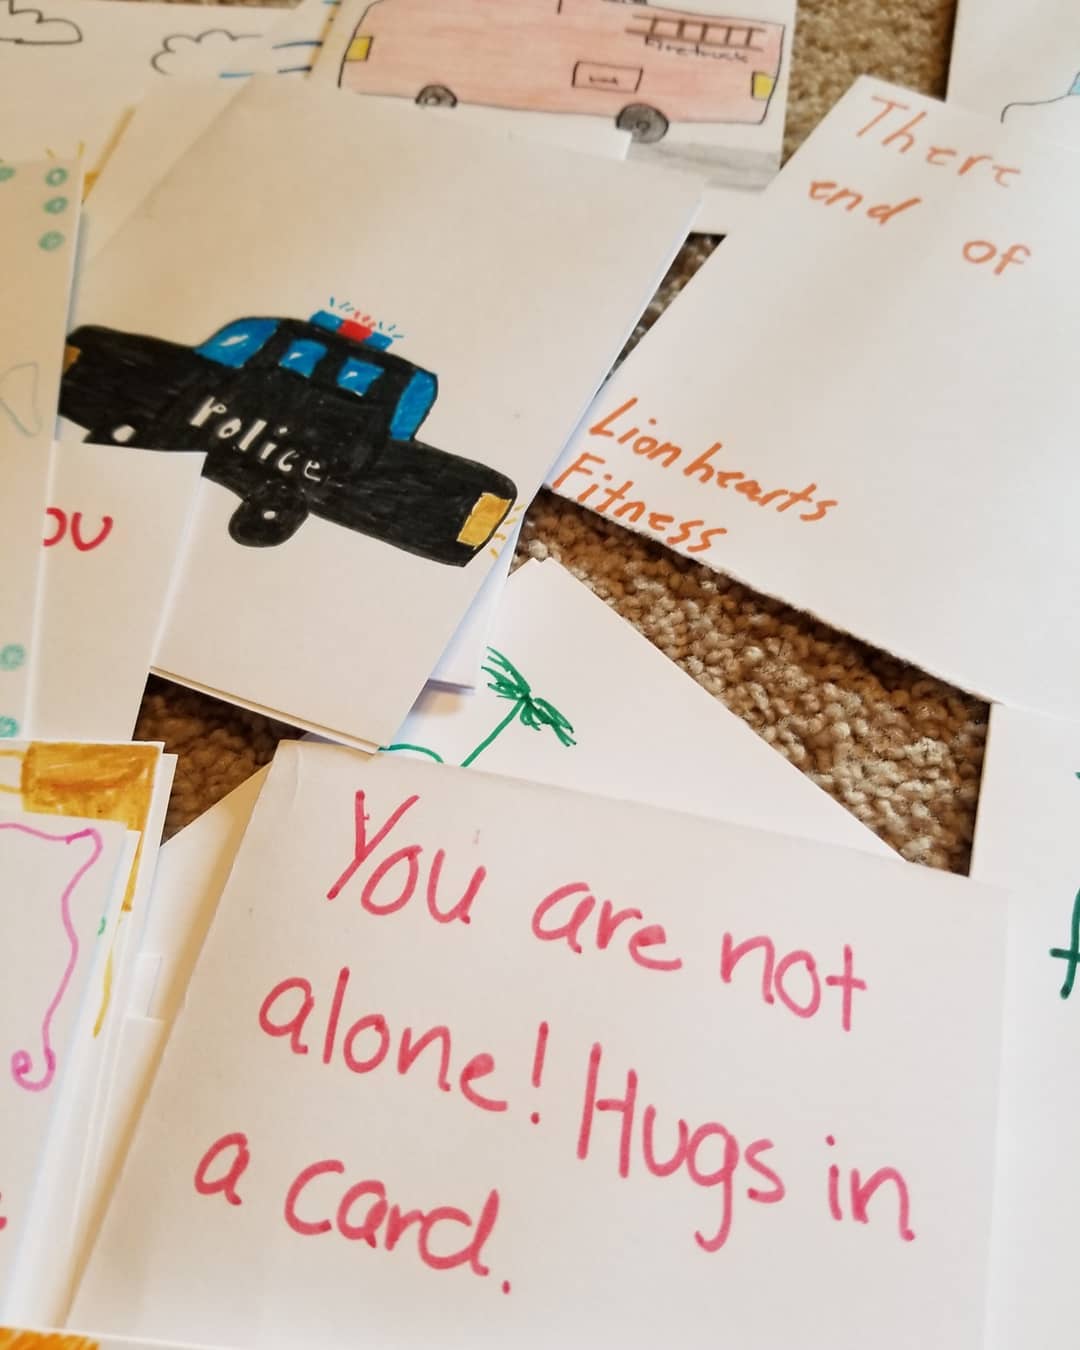 Firetruck
There
end of
Police
Lionhearts
Fitness
OU
You are not
alone! Hugs in
a card.
f